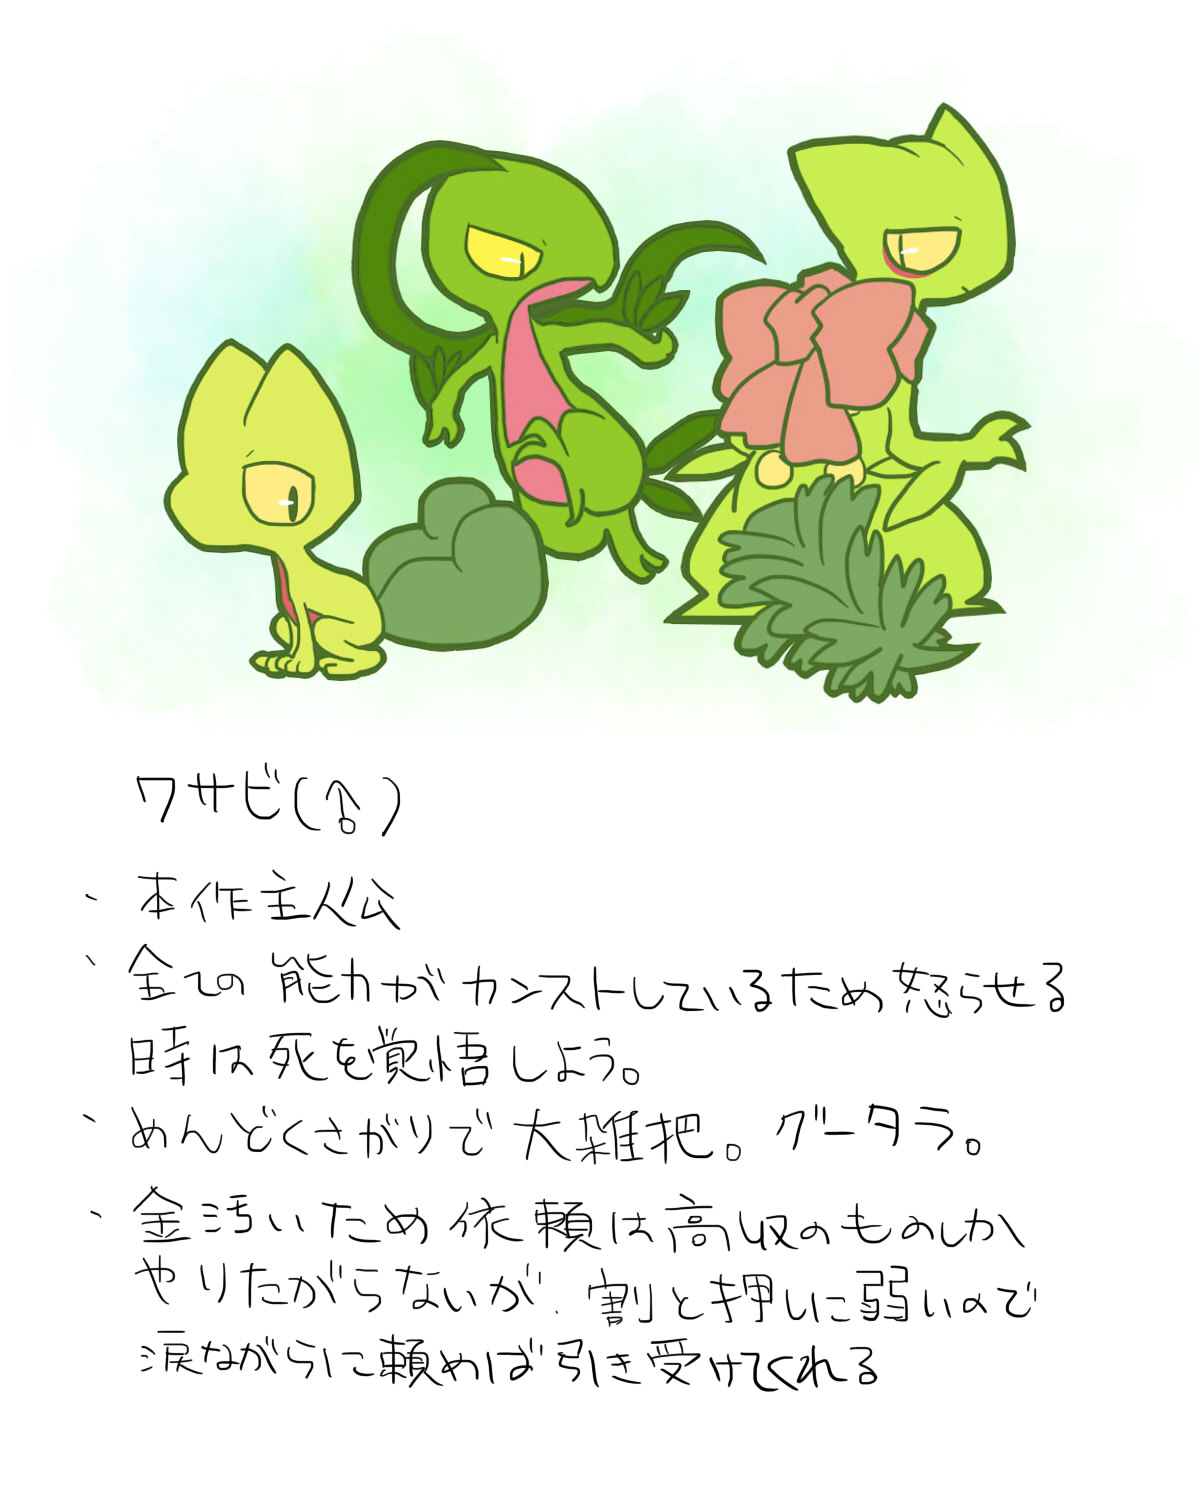 ワサビ(♂)
、本作主人公
、全ての能力がカンストしているため怒らせる
時は死を覚悟しよう。
、めんどくさがりで大雑把。グータラ。
、金汚いため依頼は高収のものしか
やりたがらないが、割と押しに弱いので
涙ながらに頼めば引き受けてくれる